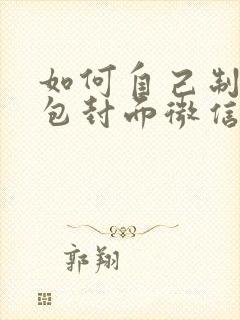 如何自己制
包封面微信
郭翔